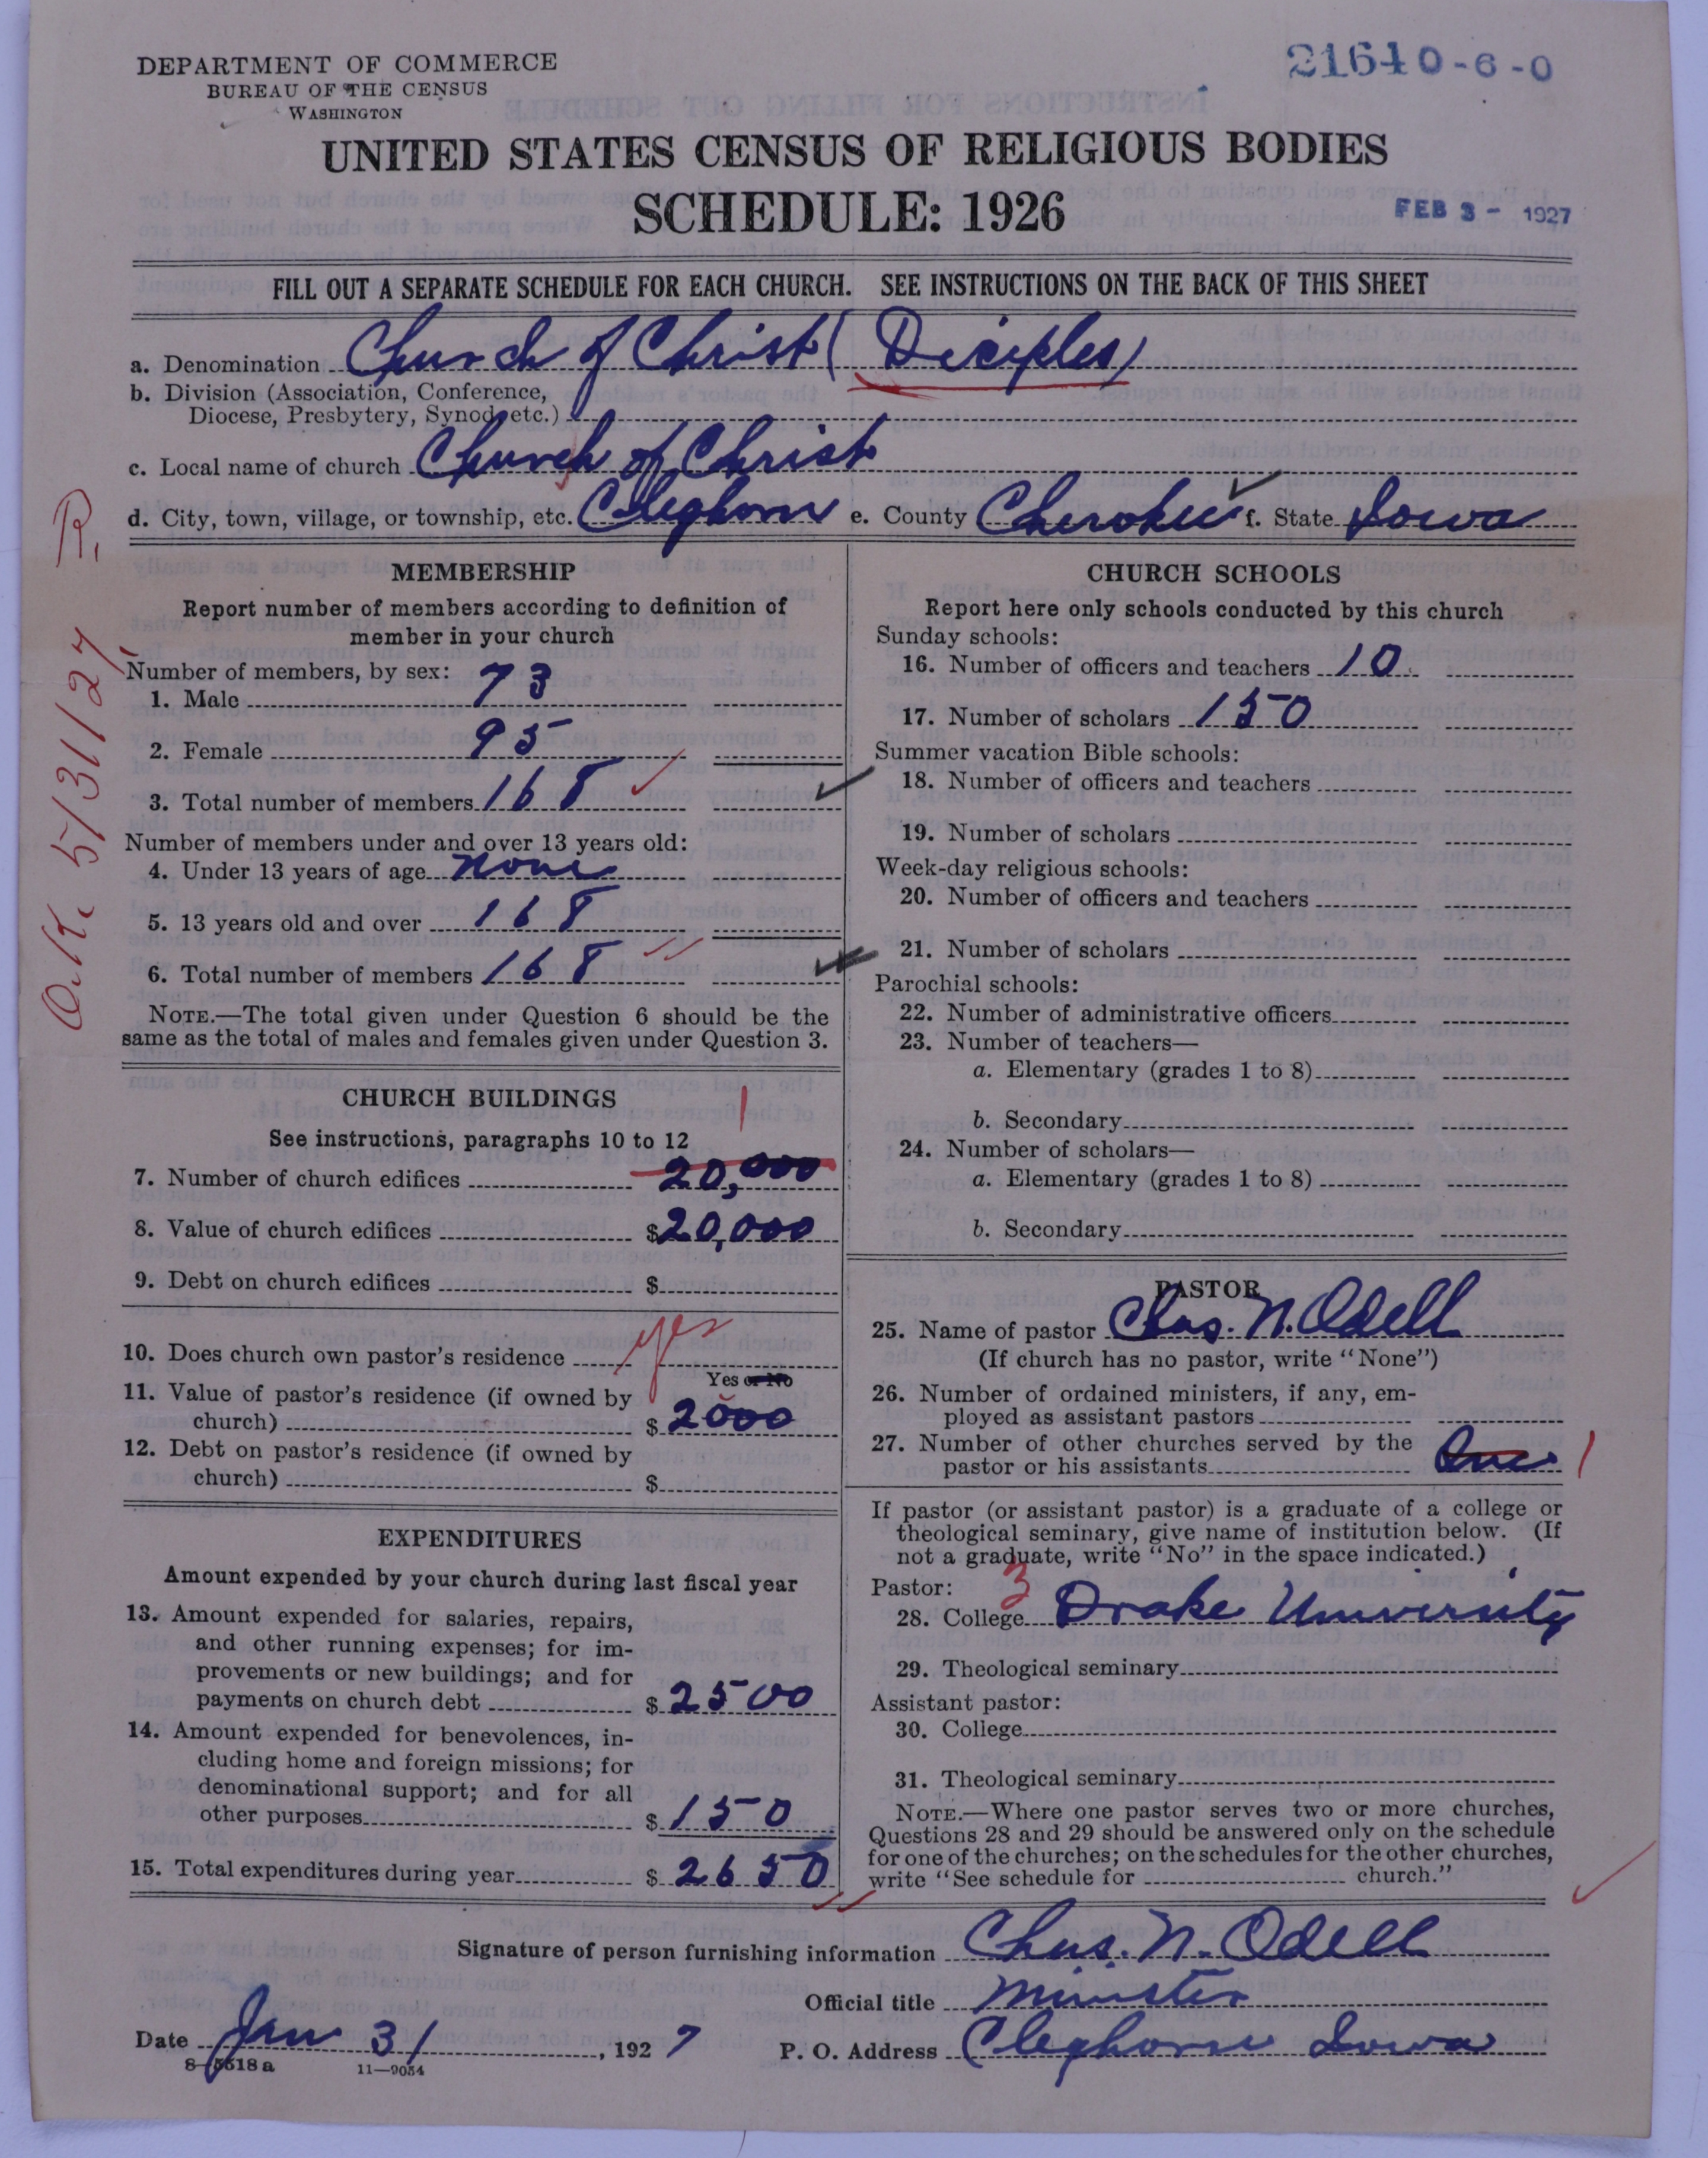 21640-6-0
DEPARTMENT OF COMMERCE
BUREAU OF THE CENSUS
WASHINGTON
UNITED STATES CENSUS OF RELIGIOUS BODIES
SCHEDULE: 1926
FEB 3 - 1927
FILL OUT A SEPARATE SCHEDULE FOR EACH CHURCH. SEE INSTRUCTIONS ON THE BACK OF THIS SHEET
a. Denomination Church of Christ (Diciples)
b. Division (Association, Conference,
Diocese, Presbytery, Synod, etc.)
c. Local name of church Church of Christ
d. City, town, village, or township, etc. Cleghorn e. County Cherokee f. State Iowa
O.K. 5/31/27 R.
MEMBERSHIP
Report number of members according to definition of
member in your church
Number of members, by sex:
1. Male 73
2. Female 95
3. Total number of members 168
Number of members under and over 13 years old:
4. Under 13 years of age none
5. 13 years old and over 168
6. Total number of members 168
NOTE.—The total given under Question 6 should be the
same as the total of males and females given under Question 3.
CHURCH BUILDINGS
See instructions, paragraphs 10 to 12
1
7. Number of church edifices 20,000
8. Value of church edifices $20,000
9. Debt on church edifices $
10. Does church own pastor's residence yes
Yes or No
11. Value of pastor's residence (if owned by
church) $2000
12. Debt on pastor's residence (if owned by
church) $
EXPENDITURES
Amount expended by your church during last fiscal year
13. Amount expended for salaries, repairs,
and other running expenses; for im-
provements or new buildings; and for
payments on church debt $2500
14. Amount expended for benevolences, in-
cluding home and foreign missions; for
denominational support; and for all
other purposes $150
15. Total expenditures during year $2650
CHURCH SCHOOLS
Report here only schools conducted by this church
Sunday schools:
16. Number of officers and teachers 10
17. Number of scholars 150
Summer vacation Bible schools:
18. Number of officers and teachers
19. Number of scholars
Week-day religious schools:
20. Number of officers and teachers
21. Number of scholars
Parochial schools:
22. Number of administrative officers
23. Number of teachers—
a. Elementary (grades 1 to 8)
b. Secondary
24. Number of scholars—
a. Elementary (grades 1 to 8)
b. Secondary
PASTOR
25. Name of pastor Chas. N. Odell
(If church has no pastor, write "None")
26. Number of ordained ministers, if any, em-
ployed as assistant pastors
27. Number of other churches served by the
pastor or his assistants One 1
If pastor (or assistant pastor) is a graduate of a college or
theological seminary, give name of institution below. (If
not a graduate, write "No" in the space indicated.)
Pastor: 3
28. College Drake University
29. Theological seminary
Assistant pastor:
30. College
31. Theological seminary
NOTE.—Where one pastor serves two or more churches,
Questions 28 and 29 should be answered only on the schedule
for one of the churches; on the schedules for the other churches,
write "See schedule for church."
Signature of person furnishing information Chas. N. Odell
Official title Minister
Date Jan 31, 1927 P. O. Address Cleghorn Iowa
8-5518 a 11—9054